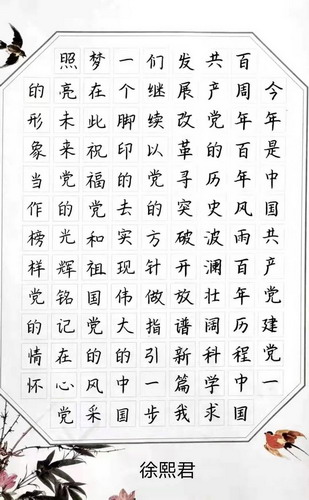 今年是中国共产党建党一
百周年百年风雨百年历程中国
共产党的历史波澜壮阔科学求
发展改革寻突破开放谱新篇我
们继续以党的方针做指引一步
一个脚印的去实现伟大的中国
梦在此祝福党和祖国党的风采
照亮未来党的光辉铭记在心党
的形象当作榜样党的情怀
徐熙君